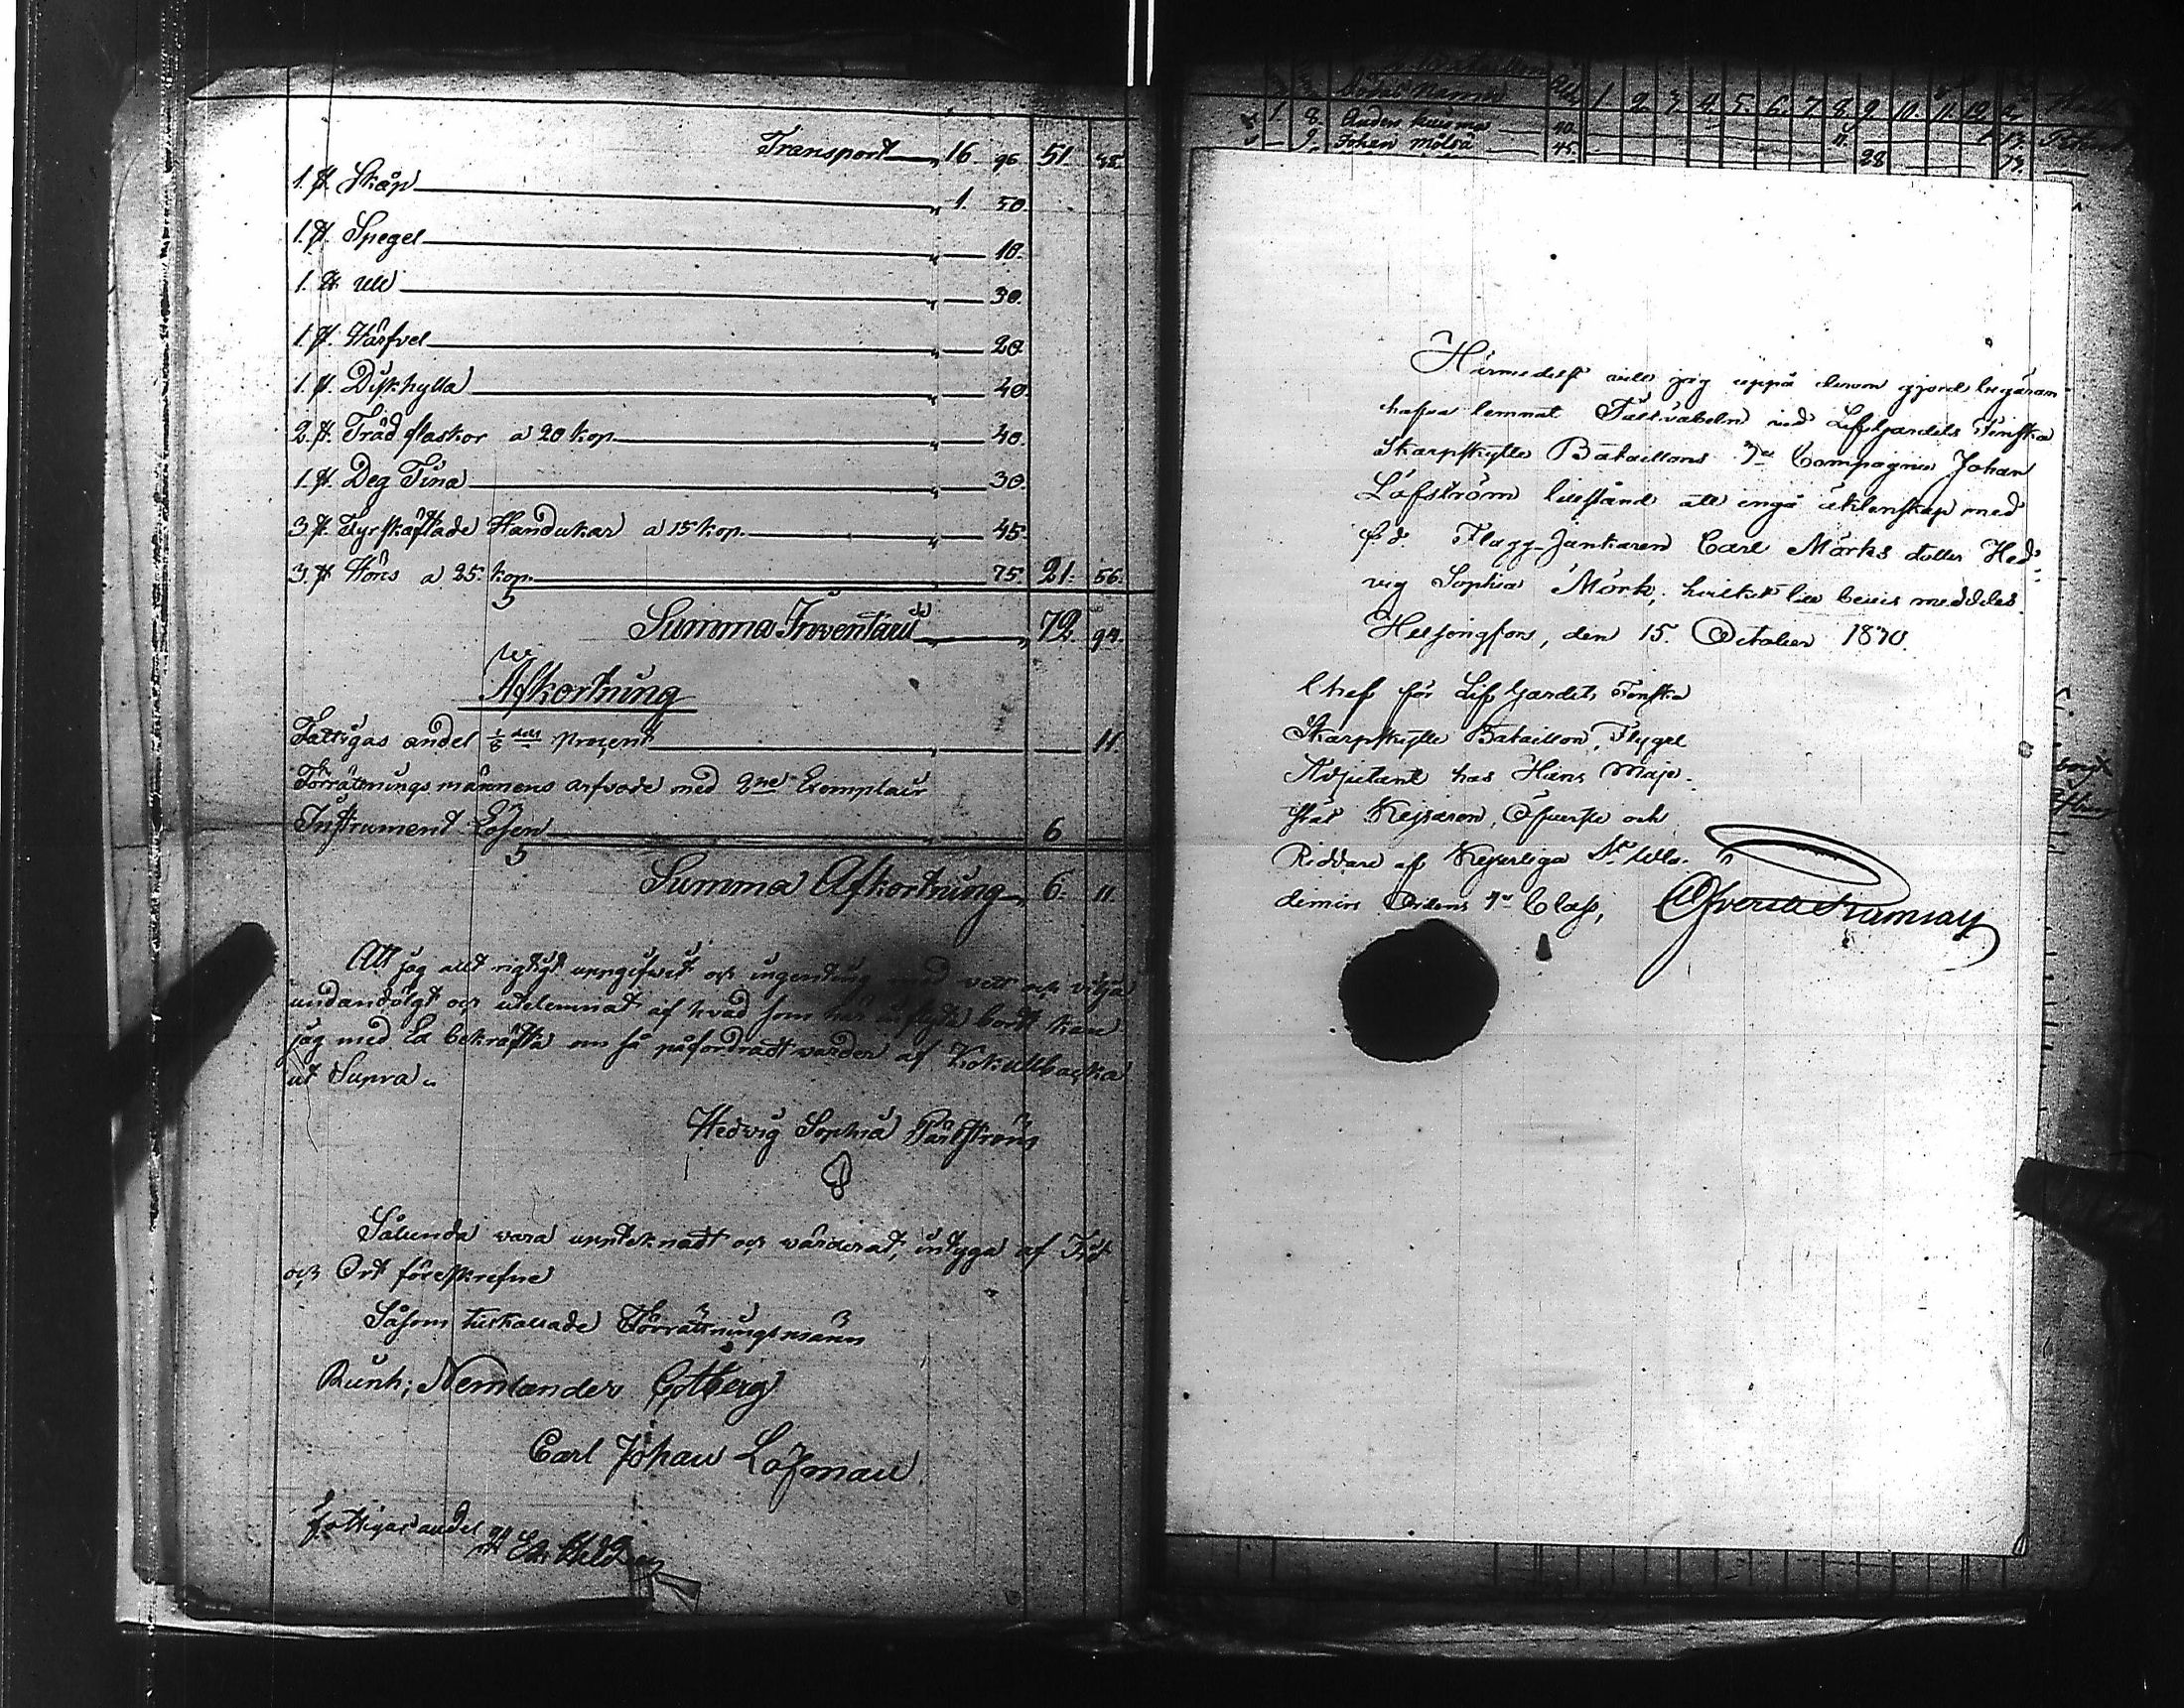 Transport 16 96 51 38
1. st. Skåp 1. 50.
1. st. Spegel 10.
1. st. Ull 30.
1. st. Härfvel 20
1. st. Diskhylla 40.
2. st. Träd flaskor a 20 kop. 40.
1. st. Deg Tina 30.
3. st. Fyrskaftade Handukar a 15 kop. 45.
3. st. Höns a 25. kop. 75. 21. 56.
Summa Inventarii 72. 94.
Afkortning
Fattigas andel 1/8 dels procent 11
Förrättningsmännens arfvode med 2ne Exemplair
Instrument Lösen 6
Summa Afkortning 6. 11.
Att jag allt rigtigt uppgifvit och ingenting med vett och vilja
undandölgt och utelemnat af hvad som bordt kan
jag med Ed bekräfta om så påfordradt varder af Kokullbacka
ut Supra.
Hedvig Sophia Pärlström
Sålunda vara upptecknadt och värderat, intyga af Tid
och Ort föreskrefne
Såsom tillkallade Förrättningsmänn
Gotberg
Carl Johan Löfman
fattigas andel
Namn
1 2 3 4 5 6 7 8 9 10 11 12
1. 8. Anders 40.
9. Johan Mölsä 45. 28
Härmedelst vill jag uppå derom gjord begäran
hafva lemnat Fältväbeln vid Lifgardets Finska
Skarpskytte Bataillons Compagnie Johan
Löfström tillstånd att ingå äktenskap med
f.d. Flagg-Junkaren Carl Mörks dotter Hed-
vig Sophia Mörk; hvilket till bevis meddelas.
Helsingfors, den 15. October 1870.
Chef för Lif Gardets Finska
Skarpskytte Bataillon, Flygel
Adjutant hos Hans Maje-
stät Kejsaren, Öfverste och
Riddare af Kejserliga St. Wla-
dimirs Ordens Class,
Ramsay